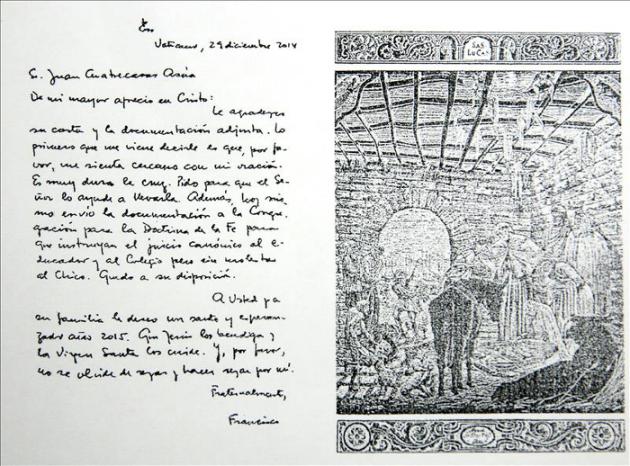 Vaticano, 29 diciembre 2014
Sr. Juan Cuatrecasas Asúa
De mi mayor aprecio en Cristo:
Le agradezco
su carta y la documentación adjunta. Lo
primero que me viene decirle es que, por fa-
vor, me sienta cercano con mi oración.
Es muy dura la cruz. Pido para que el Se-
ñor lo ayude a llevarla. Además, hoy mis-
mo envío la documentación a la Congre-
gación para la Doctrina de la Fe para
que instruyan el juicio canónico al e-
ducador y al Colegio pero sin molestar
al Chico. Quedo a su disposición.
A Usted ya
su familia le deseo un santo y esperan-
zador años 2015. Que Jesús los bendiga y
la Virgen Santa los cuide. Y, por favor,
no se olvide de rezar y hacer rezar por mí.
Fraternalmente,
Francisco
SAS
LUCAS